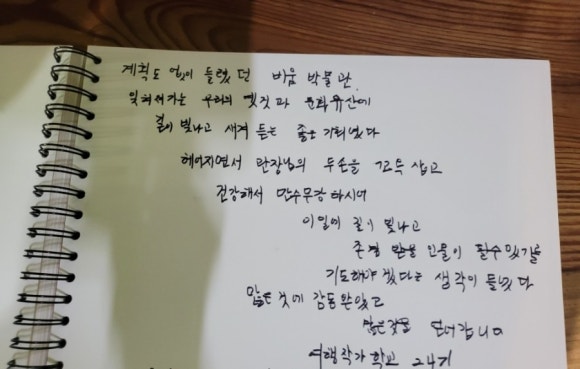 계획도 없이 들렸던 비움 박물관.
잊혀져가는 우리의 옛것과 문화유산에
길이 빛나고 새겨 듣는 좋은 기회였다
헤어지면서 관장님의 두손을 꼬옥 잡고
건강해서 만수무강 하시어
이일이 길이 빛나고
존경 받을 인물이 될수있기를
기도해야 겠다는 생각이 들었다
많은것에 감동받았고
많은것을 담아갑니다
여행작가 학교 24기